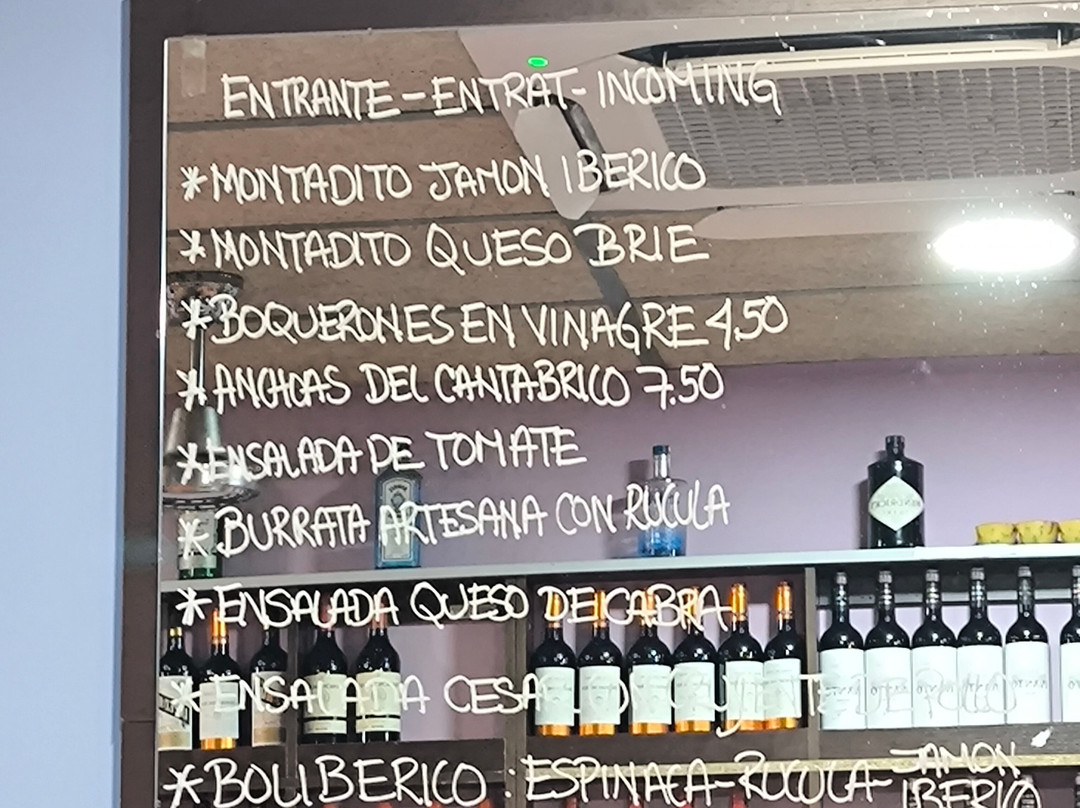 ENTRANTE-ENTRAT-INCOMING
*MONTADITO JAMON IBERICO
*MONTADITO QUESO BRIE
*BOQUERONES EN VINAGRE 4,50
*ANCHOAS DEL CANTABRICO 7.50
*ENSALADA DE TOMATE
*BURRATA ARTESANA CON RUCULA
*ENSALADA QUESO DE CABRA
*ENSALADA CESAR CON CRUJIENTE DE POLLO
*BOLIBERICO: ESPINACA-RUCULA-JAMON
IBERICO